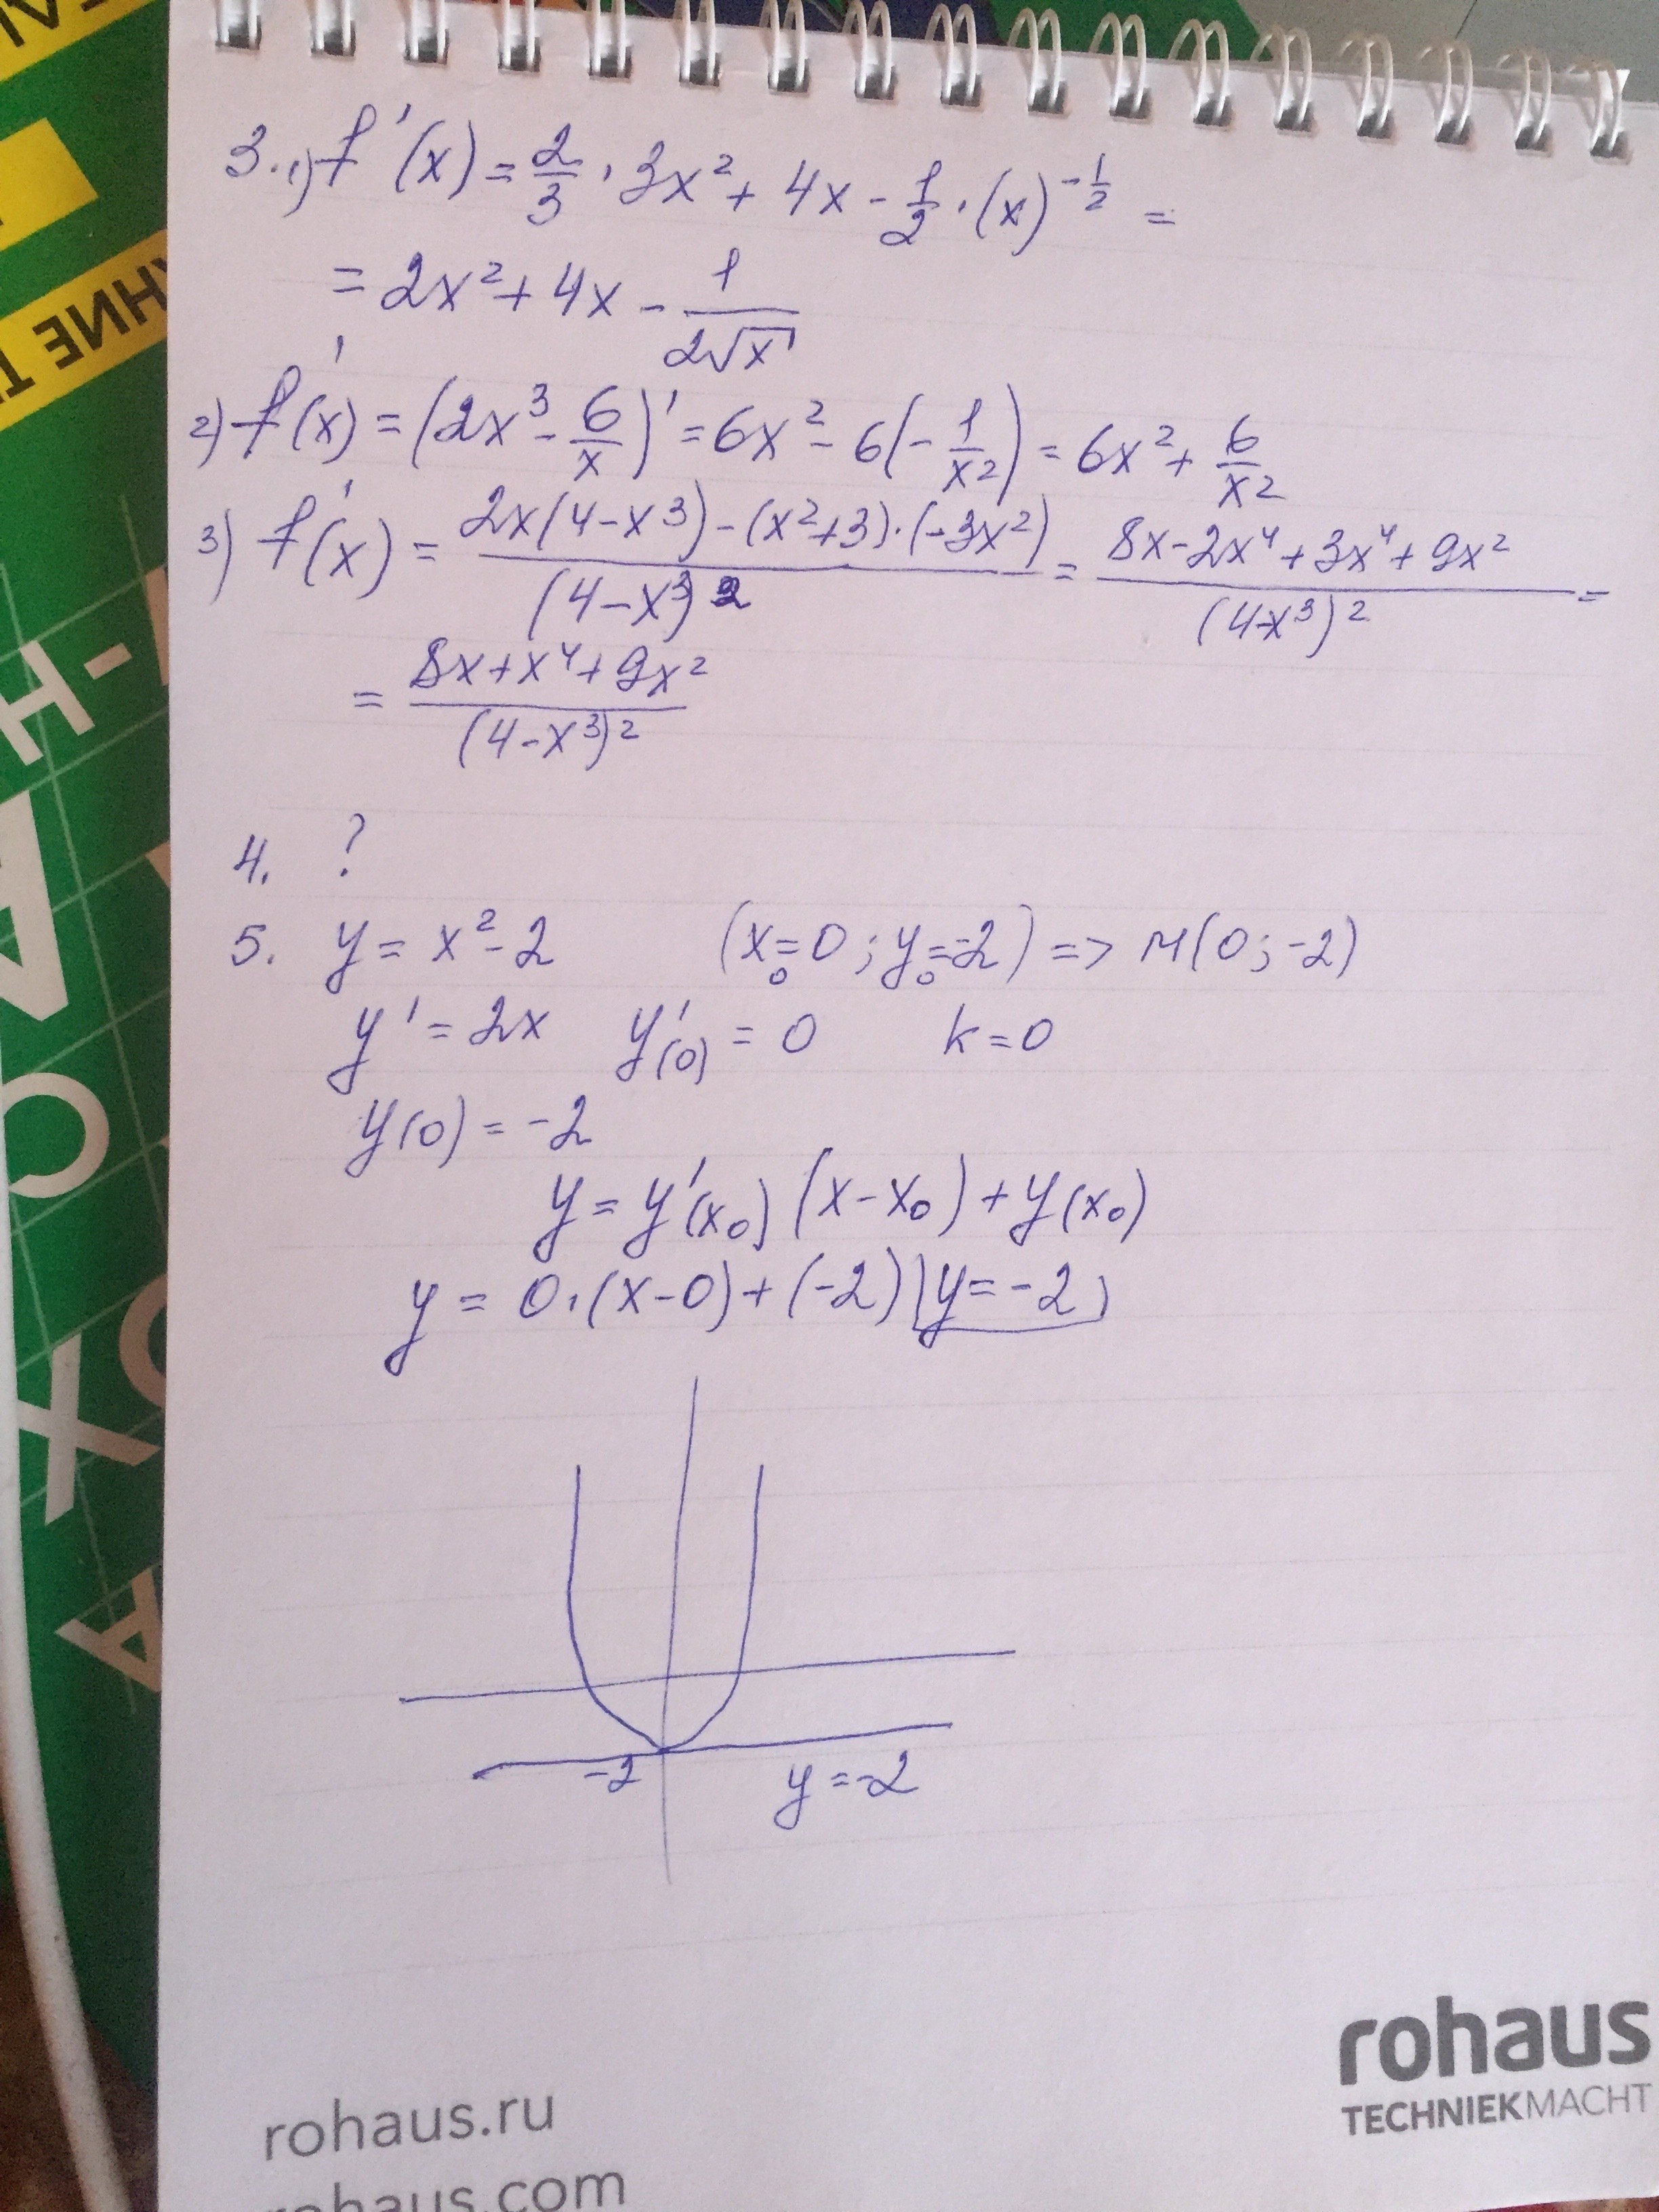 3. 1) f'(x) = 2/3 · 3x² + 4x - 1/2 · (x)^(-1/2) =
= 2x² + 4x - 1/(2√x)
2) f'(x) = (2x³ - 6/x)' = 6x² - 6(-1/x²) = 6x² + 6/x²
3) f'(x) = (2x(4-x³) - (x²+3)·(-3x²))/(4-x³)² = (8x - 2x⁴ + 3x⁴ + 9x²)/(4-x³)² =
= (8x + x⁴ + 9x²)/(4-x³)²
4. ?
5. y = x² - 2 (x₀=0; y₀=-2) => M(0; -2)
y' = 2x y'(0) = 0 k = 0
y(0) = -2
y = y'(x₀)(x-x₀) + y(x₀)
y = 0·(x-0) + (-2) y = -2
-2 y = -2
rohaus
TECHNIEKMACHT
rohaus.ru
rohaus.com